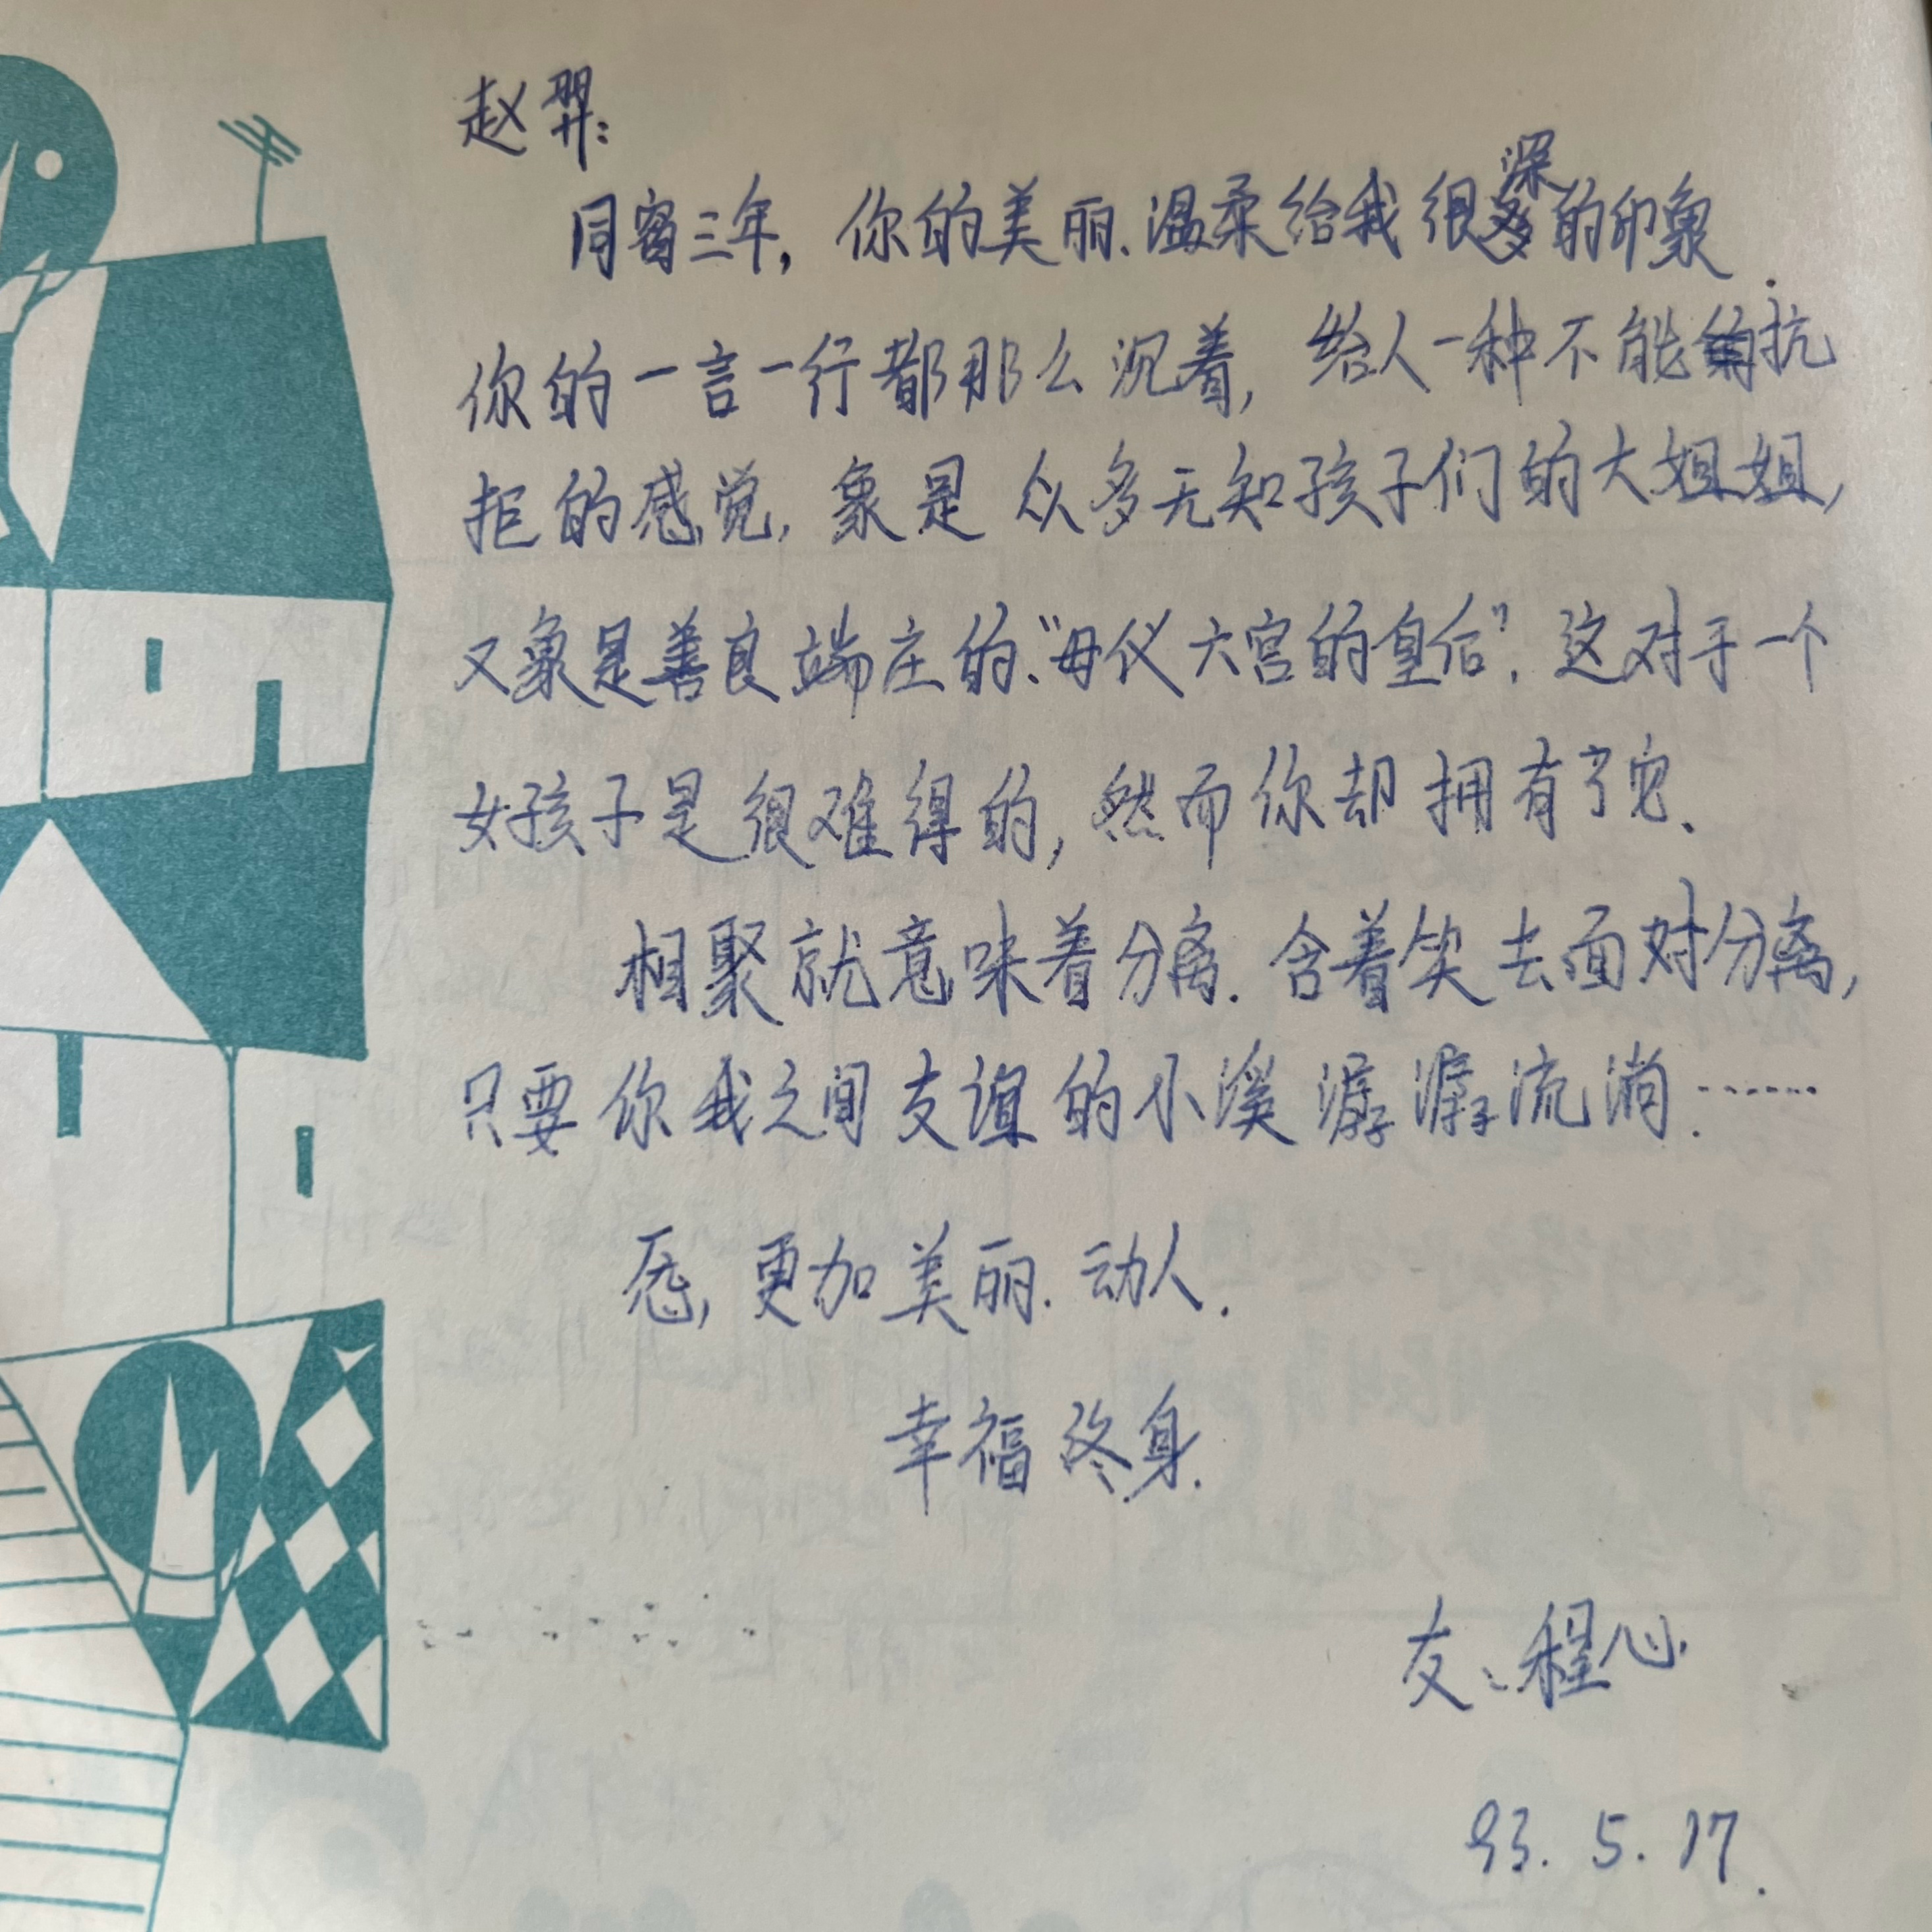 赵羿:
同窗三年，你的美丽.温柔给我很深的印象.
你的一言一行都那么沉着，给人一种不能抗
拒的感觉，象是众多无知孩子们的大姐姐，
又象是善良端庄的、“母仪六宫的皇后”.这对于一个
女孩子是很难得的，然而你却拥有了它、
相聚就意味着分离.含着笑去面对分离，
只要你我之间友谊的小溪潺潺流淌.……
愿，更加美丽.动人.
幸福终身.
友：程心.
93.5.17.